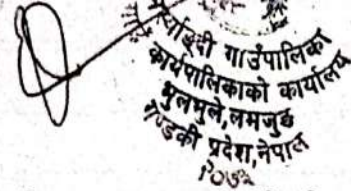 मर्स्याङ्दी गाउँपालिका
कार्यपालिकाको कार्यालय
भुलभुले, लमजुङ
गण्डकी प्रदेश, नेपाल